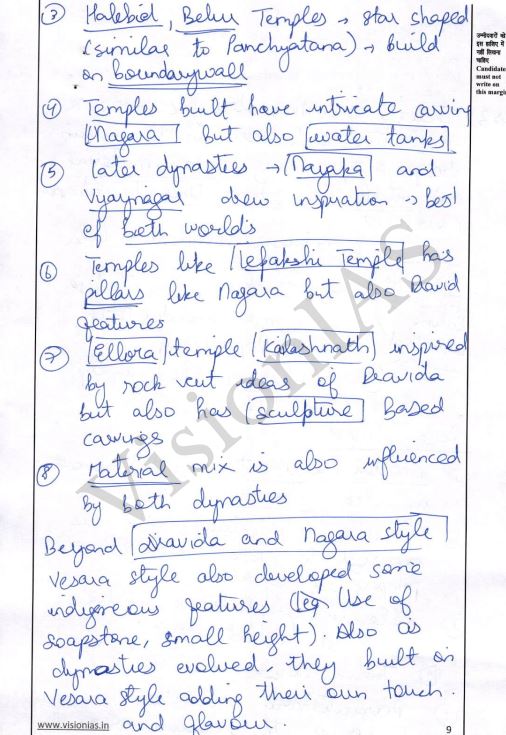 ③ Halebid, Belur Temples → star shaped
(similar to Panchyatana) → build
on boundarywall
④ Temples built have intricate carving
(Nagara) but also water tanks
⑤ Later dynasties → Nayaka and
Vyaynagar drew inspiration → best
of both worlds
⑥ Temples like Lepakshi Temple has
pillars like Nagara but also Dravid
features
⑦ Ellora temple (Kailashnath) inspired
by rock cut ideas of Dravida
but also has sculpture Based
carvings
⑧ Material mix is also influenced
by both dynasties
Beyond Dravida and Nagara style
Vesara style also developed some
indigeneous features (eg Use of
soapstone, small height). Also as
dynasties evolved, they built on
Vesara style adding their own touch.
and flavour.
उम्मीदवारों को
इस हाशिए में
नहीं लिखना
चाहिए
Candidate
must not
write on
this margin
VisionIAS
www.visionias.in
9